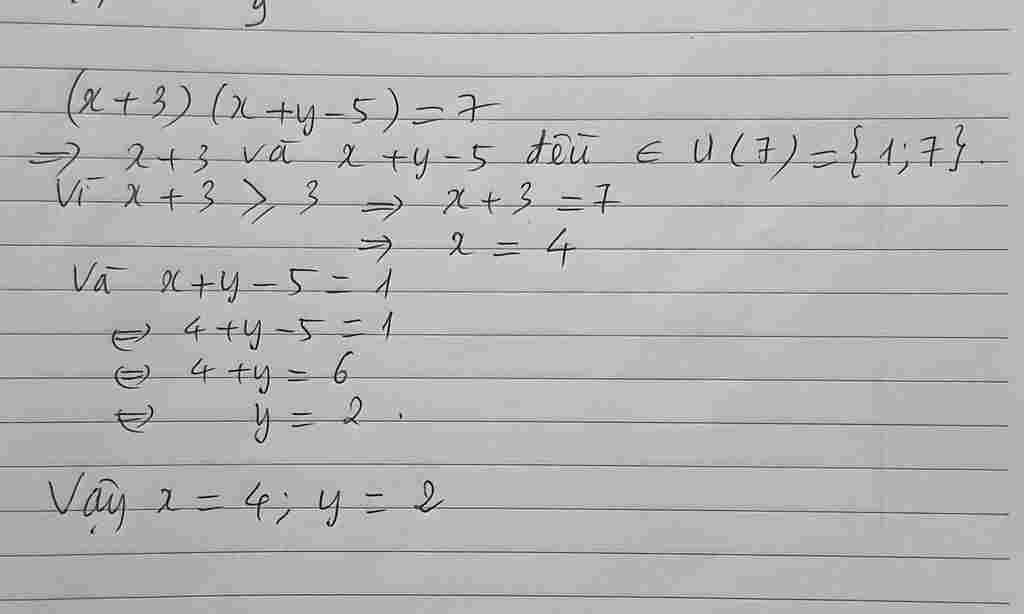 y
(x+3) (x+y-5) = 7
=> x+3 và x+y-5 đều ∈ Ư(7) = {1;7}.
Vì x+3 ⩾ 3 => x+3 = 7
=> x = 4
Và x+y-5 = 1
<=> 4+y-5 = 1
<=> 4+y = 6
<=> y = 2.
Vậy x = 4; y = 2